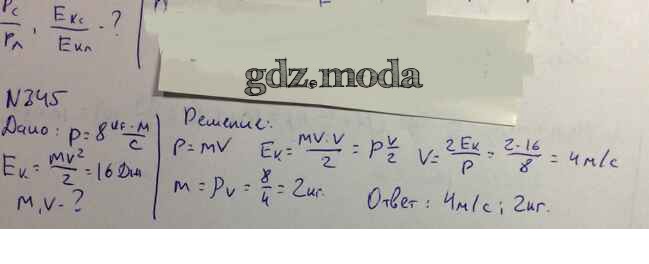 Pc/Pл, Eкс/Eкл - ?
gdz.moda
N345
Дано: P = 8 кг·м/с
Eк = mv²/2 = 16 Дж
m, v - ?
Решение:
P = mv Eк = mv·v/2 = P v/2 v = 2Eк/P = 2·16/8 = 4 м/с
m = Pv = 8/4 = 2 кг.
Ответ: 4 м/с; 2 кг.